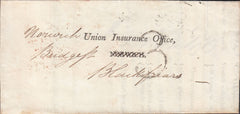 Norwich Union Insurance Office,
Bridge St
Blackfriars